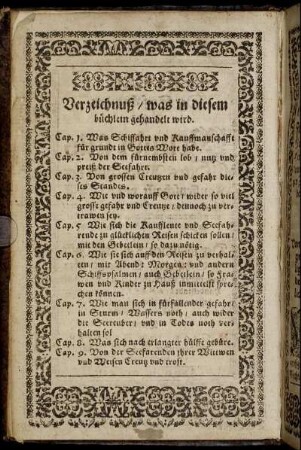 Verzeichnuß / was in diesem
büchlein gehandelt wird.
Cap. 1. Was Schiffahrt vnd Kauffmanschafft
für grundt in Gottes Wort habe.
Cap. 2. Von dem fürnembsten lob / nutz vnd
preiß der Seefahrt.
Cap. 3. Von grossen Creutzen vnd gefahr die-
ses Standes.
Cap. 4. Wie vnd worauff Gott / wider so viel
grosse gefahr vnd Creutze / dennoch zu ver-
trawen sey.
Cap. 5 Wie sich die Kauffleute vnd Seefah-
rende zu glücklichen Reisen schicken sollen /
mit den Gebetlein / so dazu nötig.
Cap. 6. Wie sie sich auff den Reisen zu verhal-
ten / mit Abend / Morgens vnd andern
Schiffspsalmen / auch Gebetlein / so Fra-
wen vnd Kinder zu Hauß inmittelst spre-
chen können.
Cap. 7. Wie man sich in fürfallender gefahr /
in Sturm / Wassers noth / auch wider
die Seereuber / vnd in Todts noth ver-
halten sol
Cap. 8. Was sich nach erlangter hülffe gebüre.
Cap. 9. Von der Seefarenden ihrer Wittwen
vnd Weisen Creutz vnd trost.